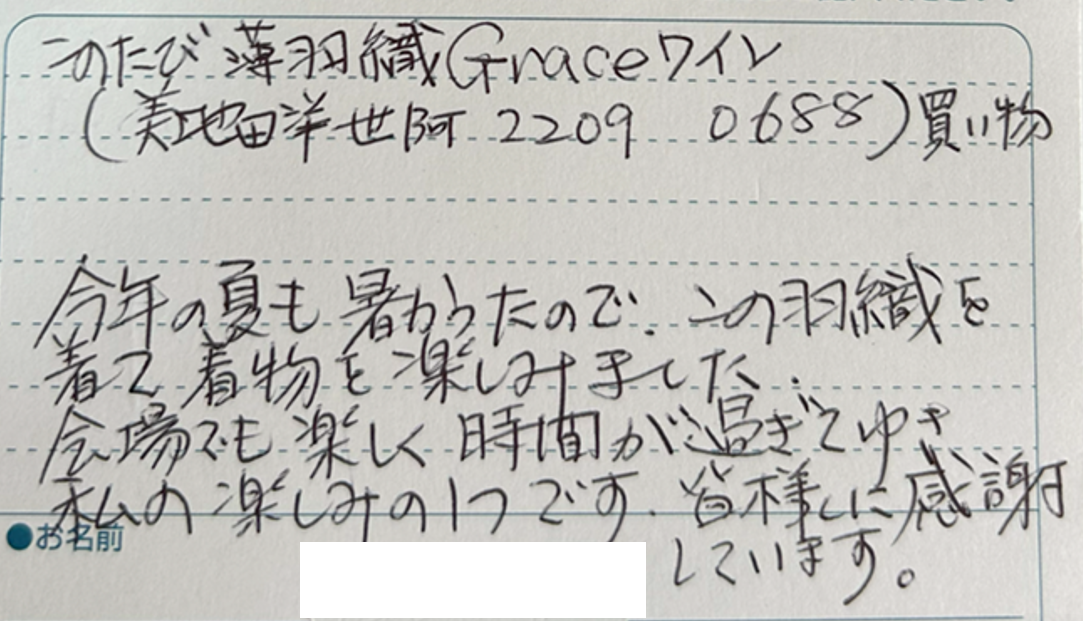 このたび薄羽織Graceワイン
(美地田洋世阿 2209 0688)買い物
今年の夏も暑かったので、この羽織を
着て着物を楽しみました.
会場でも楽しく時間が過ぎてゆき
私の楽しみの1つです. 皆様に感謝
しています。
●お名前